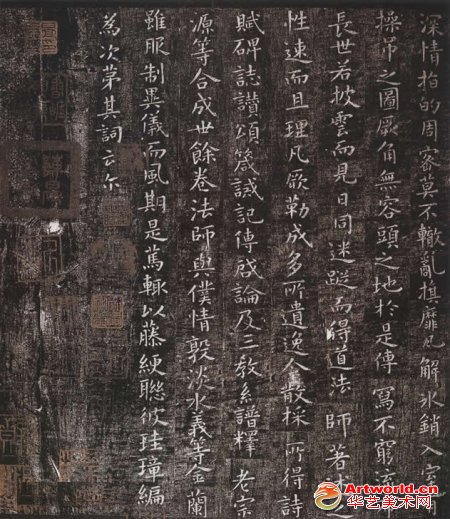 深情指的周密莫不轍亂旗靡瓦解氷銷入室有
操吊之圖厥角無容頭之地於是傳寫不窮流
長世若披雲而見日同迷蹤而得道法師著
性速而且理凡厥勒成多所遺逸今散採所得詩
賦碑誌讚頌箴誡記傳啓論及三教系譜釋老宗
源等合成丗餘卷法師與僕情敦淡水義等金蘭
雖服制異儀而風期是篤輒以藤綆聯彼珪璋編
為次第其詞云尒
Artworld.cn
华艺美术网